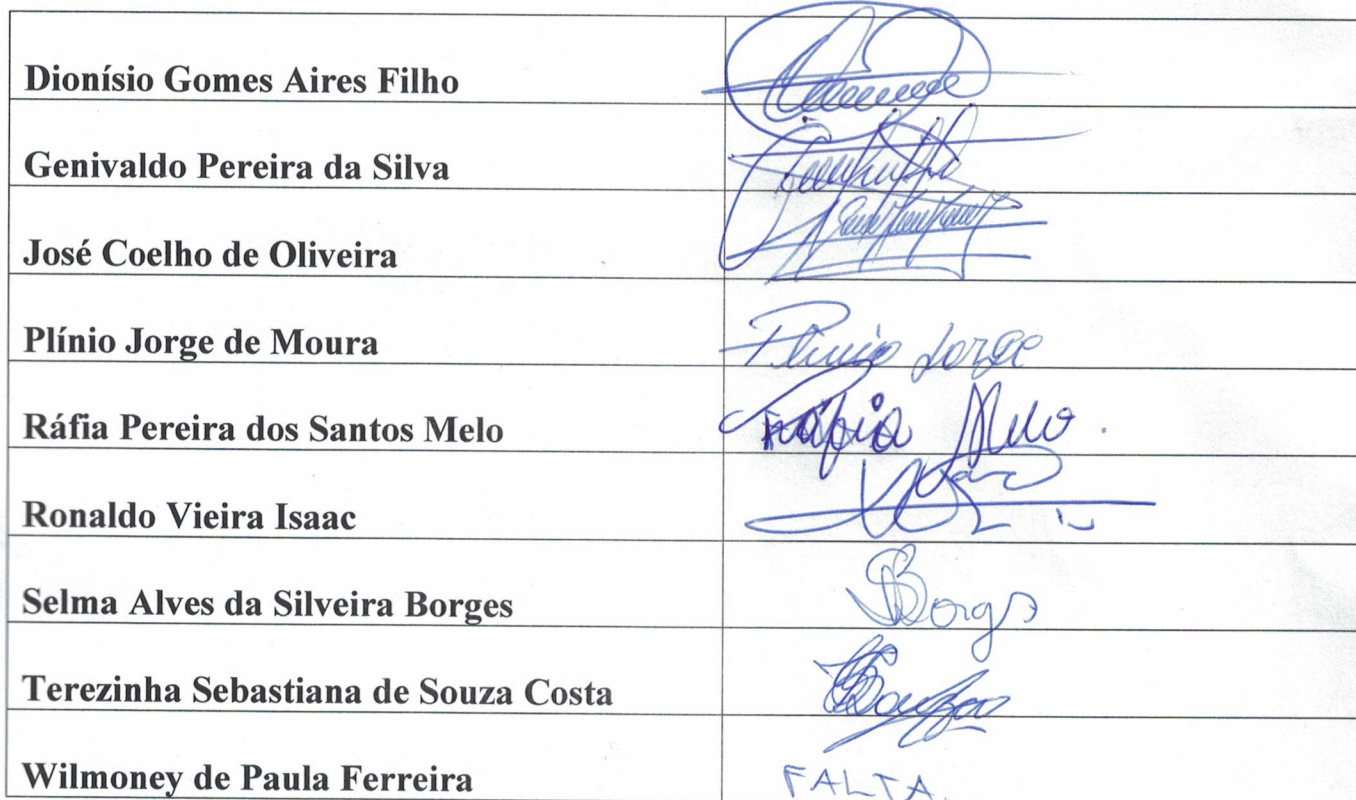 Dionísio Gomes Aires Filho
Genivaldo Pereira da Silva
José Coelho de Oliveira
Plínio Jorge de Moura Plinio Jorge
Ráfia Pereira dos Santos Melo Ráfia Melo.
Ronaldo Vieira Isaac
Selma Alves da Silveira Borges SBorges
Terezinha Sebastiana de Souza Costa
Wilmoney de Paula Ferreira FALTA.